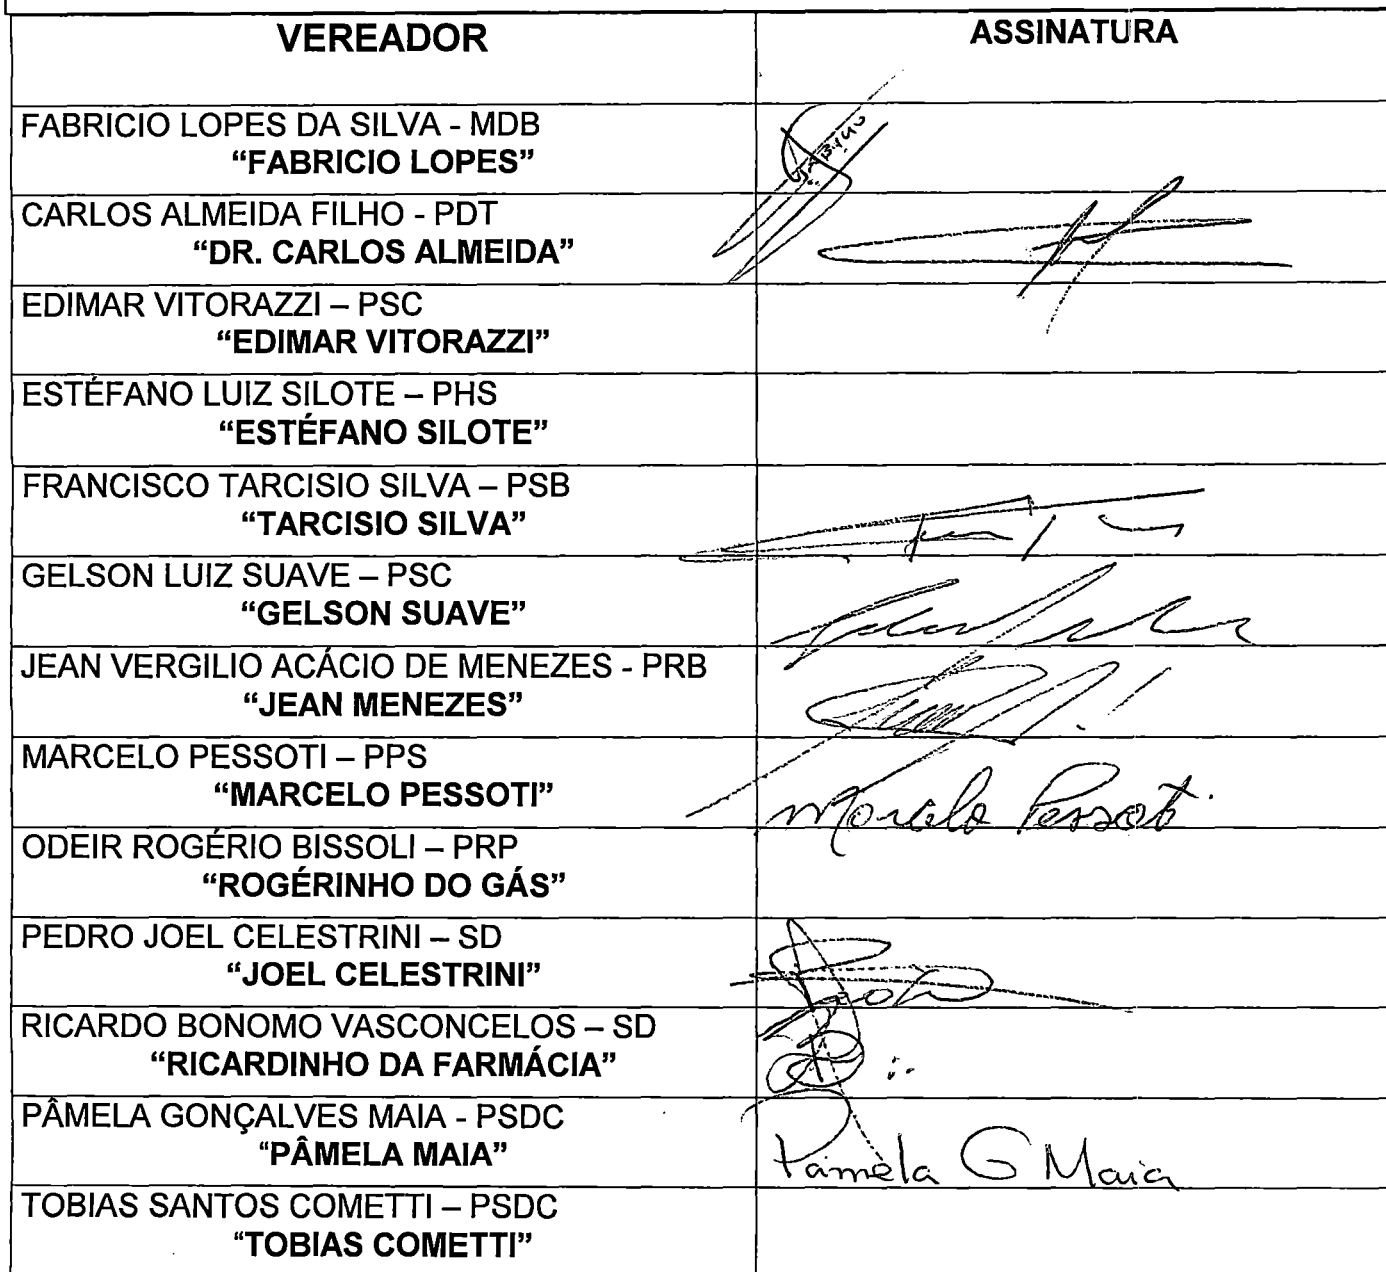 VEREADOR ASSINATURA
FABRICIO LOPES DA SILVA - MDB
“FABRICIO LOPES”
CARLOS ALMEIDA FILHO - PDT
“DR. CARLOS ALMEIDA”
EDIMAR VITORAZZI – PSC
“EDIMAR VITORAZZI”
ESTÉFANO LUIZ SILOTE – PHS
“ESTÉFANO SILOTE”
FRANCISCO TARCISIO SILVA – PSB
“TARCISIO SILVA”
GELSON LUIZ SUAVE – PSC
“GELSON SUAVE”
JEAN VERGILIO ACÁCIO DE MENEZES - PRB
“JEAN MENEZES”
MARCELO PESSOTI – PPS
“MARCELO PESSOTI” Marcelo Pessoti
ODEIR ROGÉRIO BISSOLI – PRP
“ROGÉRINHO DO GÁS”
PEDRO JOEL CELESTRINI – SD
“JOEL CELESTRINI”
RICARDO BONOMO VASCONCELOS – SD
“RICARDINHO DA FARMÁCIA”
PÂMELA GONÇALVES MAIA - PSDC
“PÂMELA MAIA” Pâmela G Maia
TOBIAS SANTOS COMETTI – PSDC
“TOBIAS COMETTI”